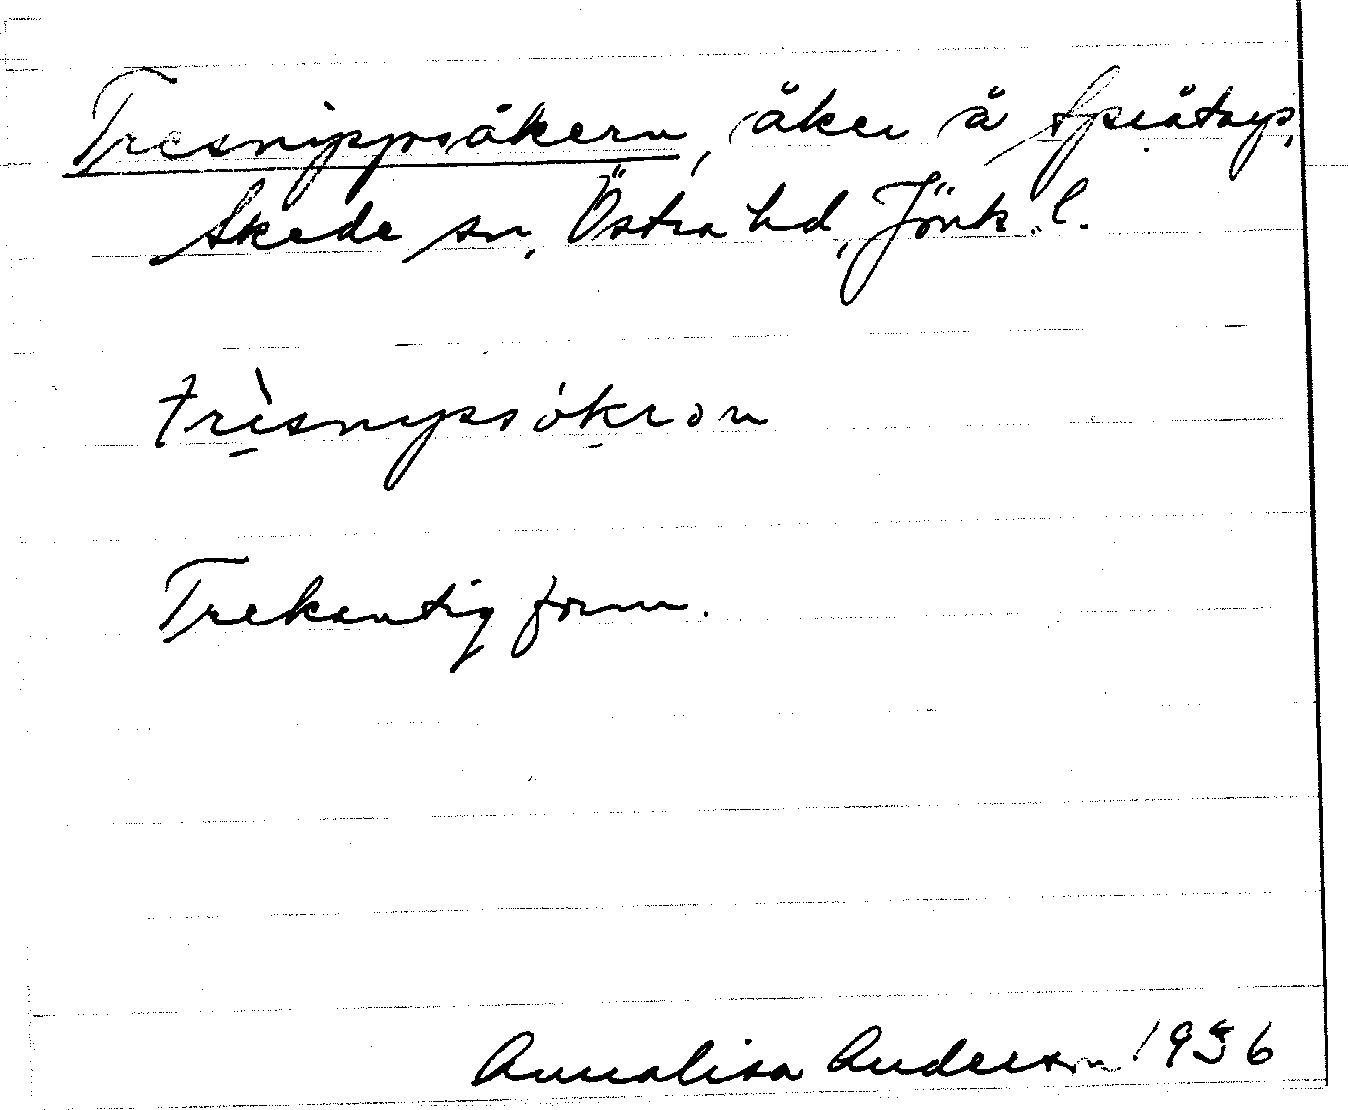 Tresnippsåkern, åker å Språtorp,
Skede sn, Östra hd, Jönk. l.
trìsnypsókrən
Trekantig form.
Annalisa Anderson 1936